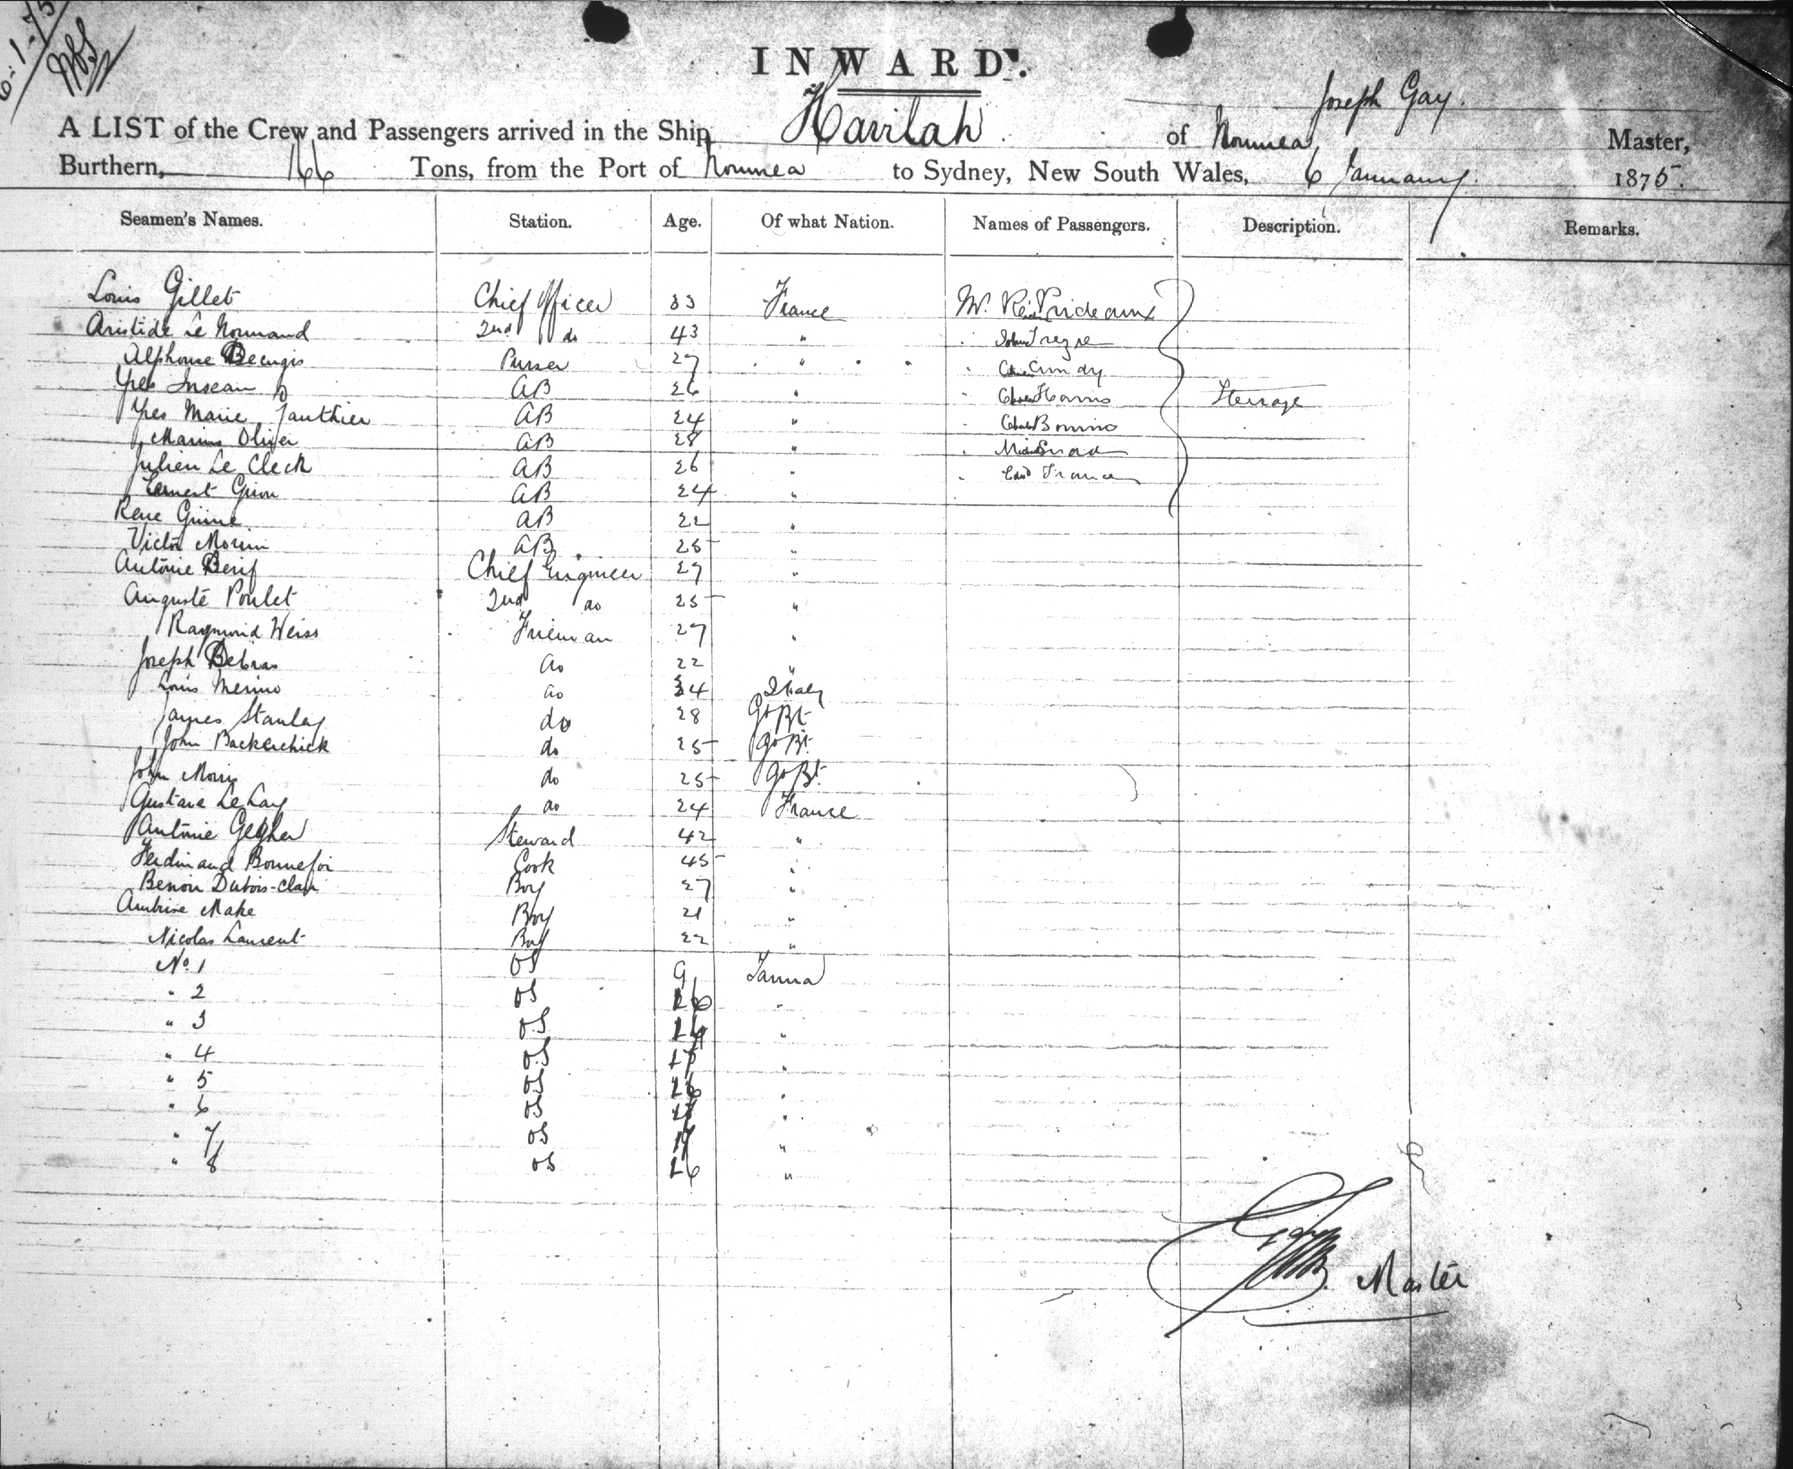 6-1-75
INWARD.
Joseph Gay.
A LIST of the Crew and Passengers arrived in the Ship Havilah of Noumea, Master,
Burthern, 166 Tons, from the Port of Noumea to Sydney, New South Wales, 6 January 1875.
Seamen's Names. Station. Age. Of what Nation. Names of Passengers. Description. Remarks.
Louis Gillet Chief Officer 33 France Mr. Prideaux
Aristide Le Normand 2nd do 43 " John
Alphonse Purser 27 " Cundy
Yves AB 26 " Charles Harris Steerage
Yves Marie Gauthier AB 24 "
Marius Olivier AB 28 "
Julien Le Cleck AB 26 "
Ernest Giron AB 24 "
Rene AB 22 "
Victor Morin AB 25 "
Antoine Chief Engineer 27 "
Auguste Poulet 2nd do 25 "
Raymond Weiss Fireman 27 "
Joseph Debras do 22 "
Louis Merino do 34 Italy
James Stanley do 28 Gt Bt
John Backerchick do 25 Gt Bt
John Morris do 25 Gt Bt
Gustave Le Lay do 24 France
Antoine Steward 42 "
Ferdinand Bonnefoi Cook 45 "
Benoir Dubois-clair Boy 27 "
Ambrise Make Boy 21 "
Nicolas Laurent Boy 22 "
No. 1 OS 9 Tanna
" 2 OS "
" 3 OS "
" 4 OS "
" 5 OS 16 "
" 6 OS "
" 7 OS "
" 8 OS 16 "
Master